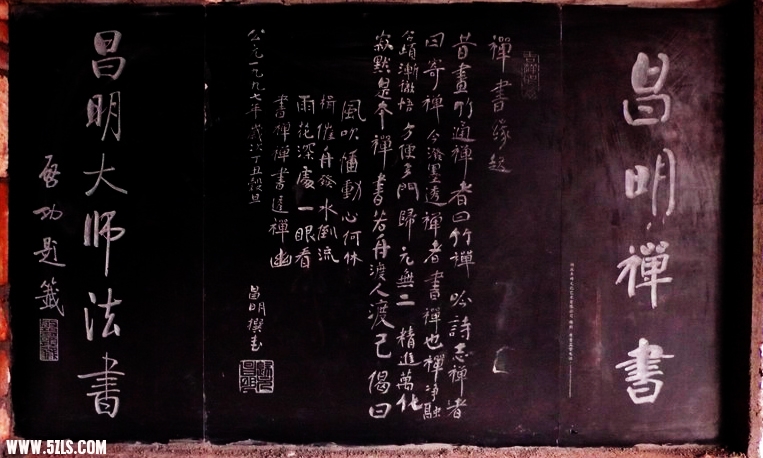 昌明禪書
禪書緣起
昔畫竹通禪者曰竹禪吟詩志禪者
曰寄禪今潑墨透禪者書禪也禪淨融
合頓漸徹悟方便多門歸元無二精進萬化
寂默是本禪書若舟渡人渡己偈曰
風吹幡動心何休
楫催舟發水倒流
雨花深處一眼看
書禪禪書達禪幽
公元一九九七年歲次丁丑穀旦
昌明撰书
昌明大师法書
启功题籤
WWW.5ZLS.COM